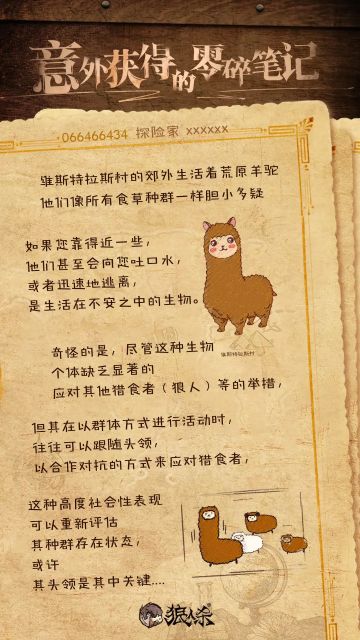 意外获得的零碎笔记
066466434 探险家 xxxxxx
维斯特拉斯村的郊外生活着荒原羊驼
他们像所有食草种群一样胆小多疑
如果您靠得近一些，
他们甚至会向您吐口水，
或者迅速地逃离，
是生活在不安之中的生物。
维斯特拉斯村
奇怪的是，尽管这种生物
个体缺乏显著的
应对其他猎食者（狼人）等的举措，
但其在以群体方式进行活动时，
往往可以跟随头领，
以合作对抗的方式来应对猎食者，
这种高度社会性表现
可以重新评估
其种群存在状态，
或许
其头领是其中关键....
狼人杀